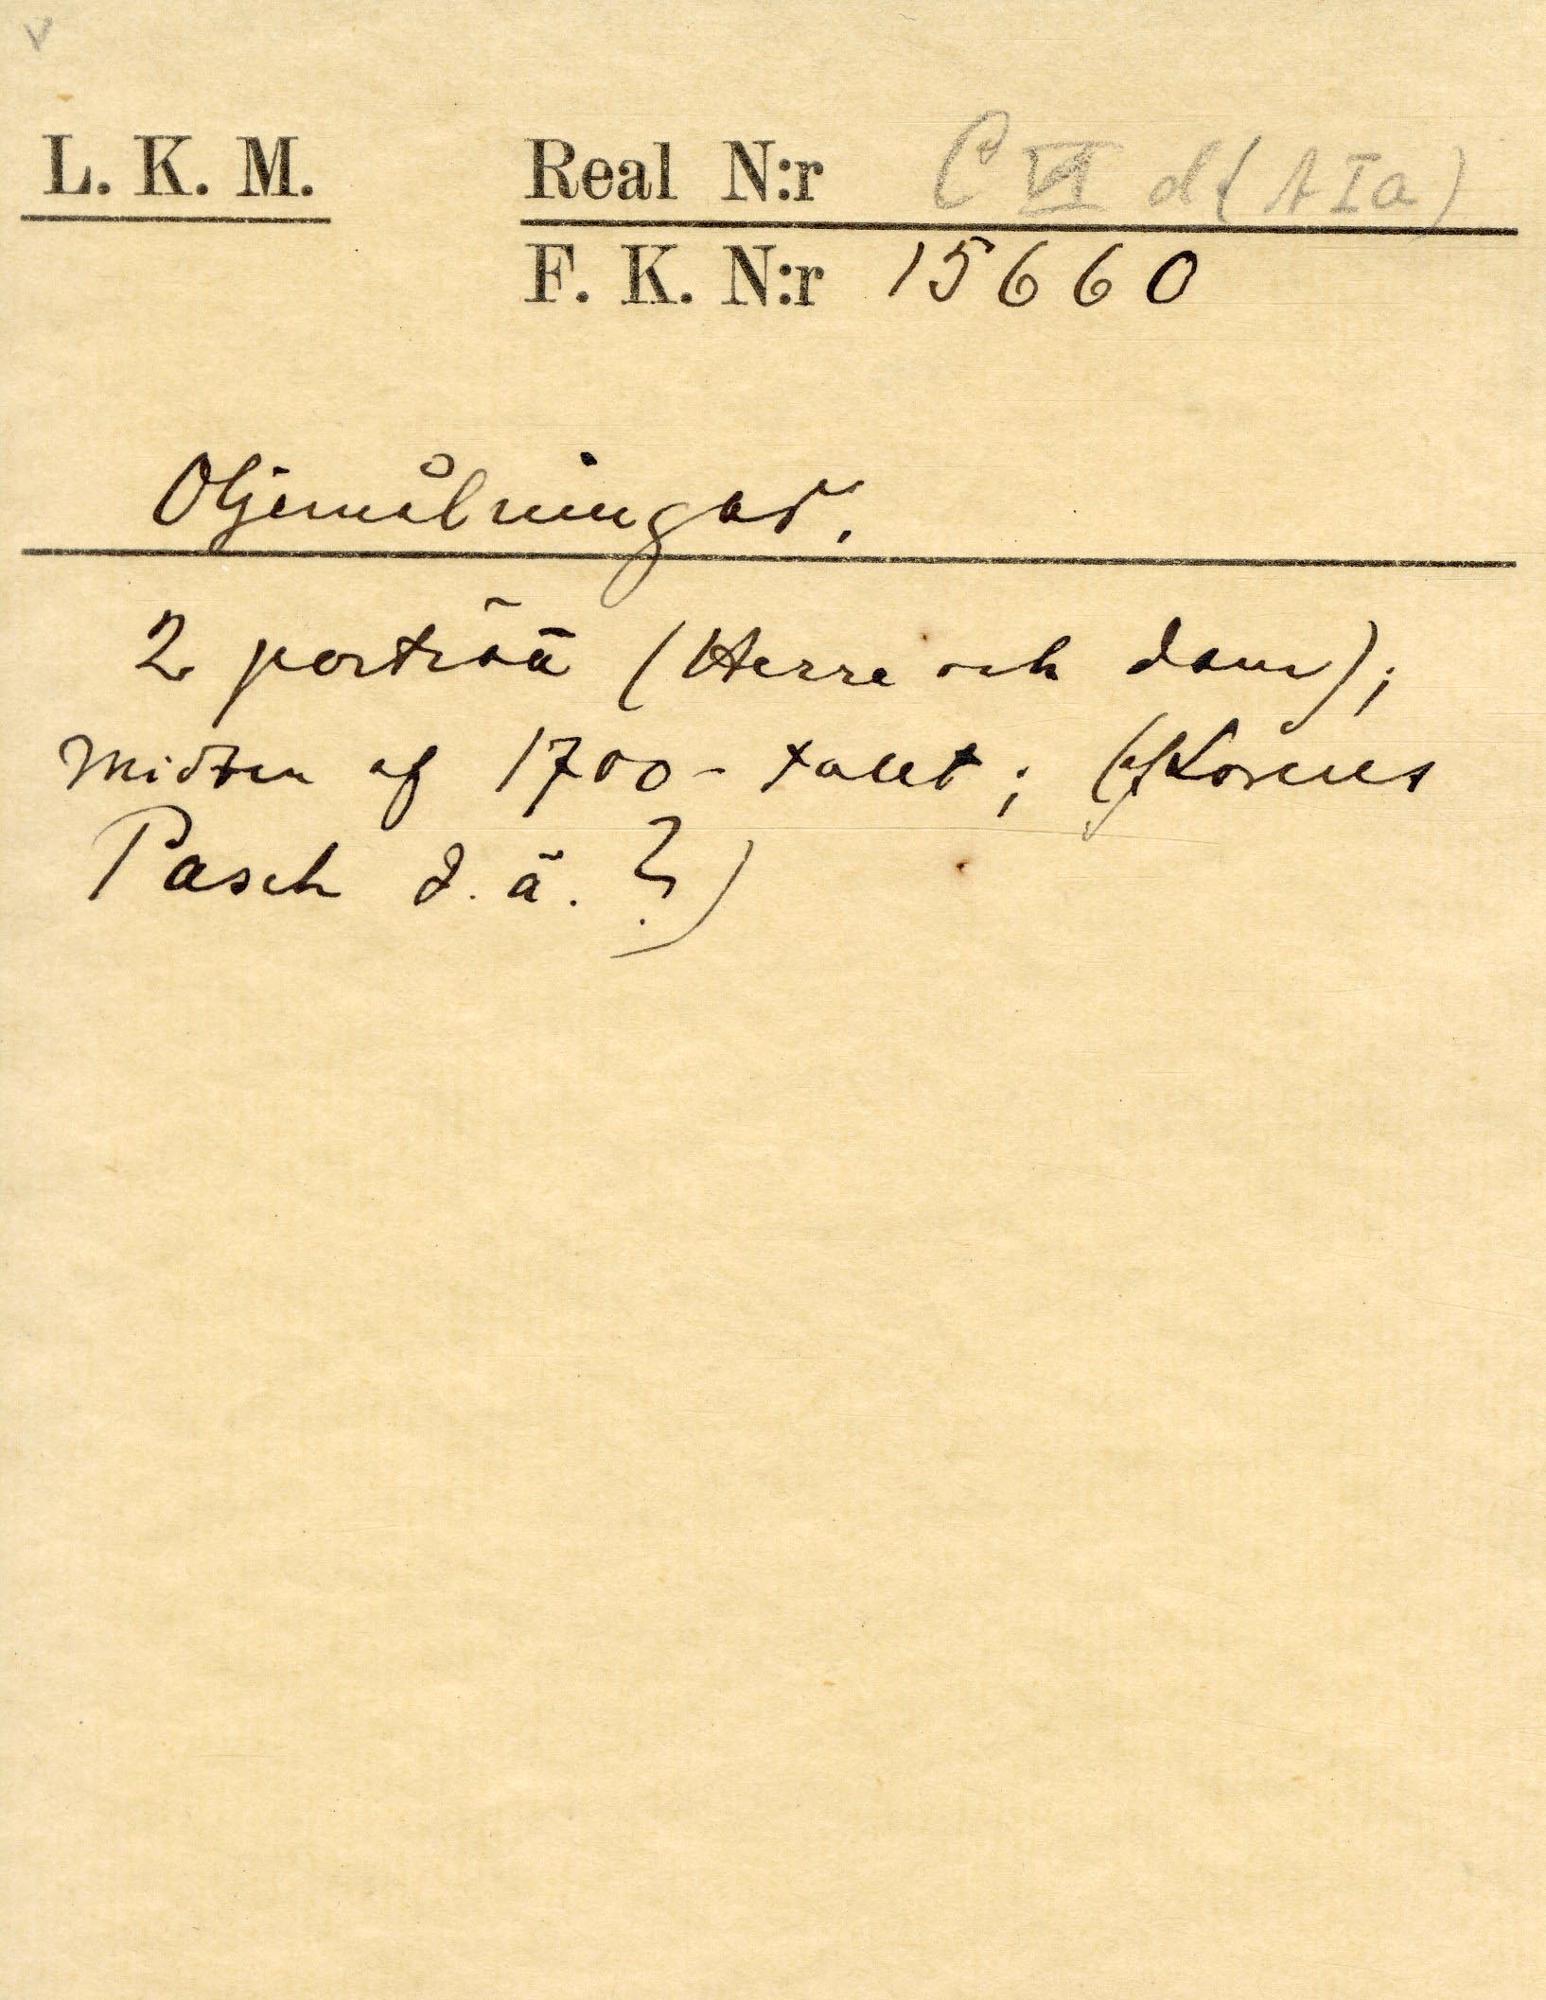 V
L. K. M. Real N:r C VI d (A I a)
F. K. N:r 15660
Oljemålningar.
2 porträtt (Herre och dam);
midten af 1700-talet; (af Lorens
Pasch d. ä. ?)